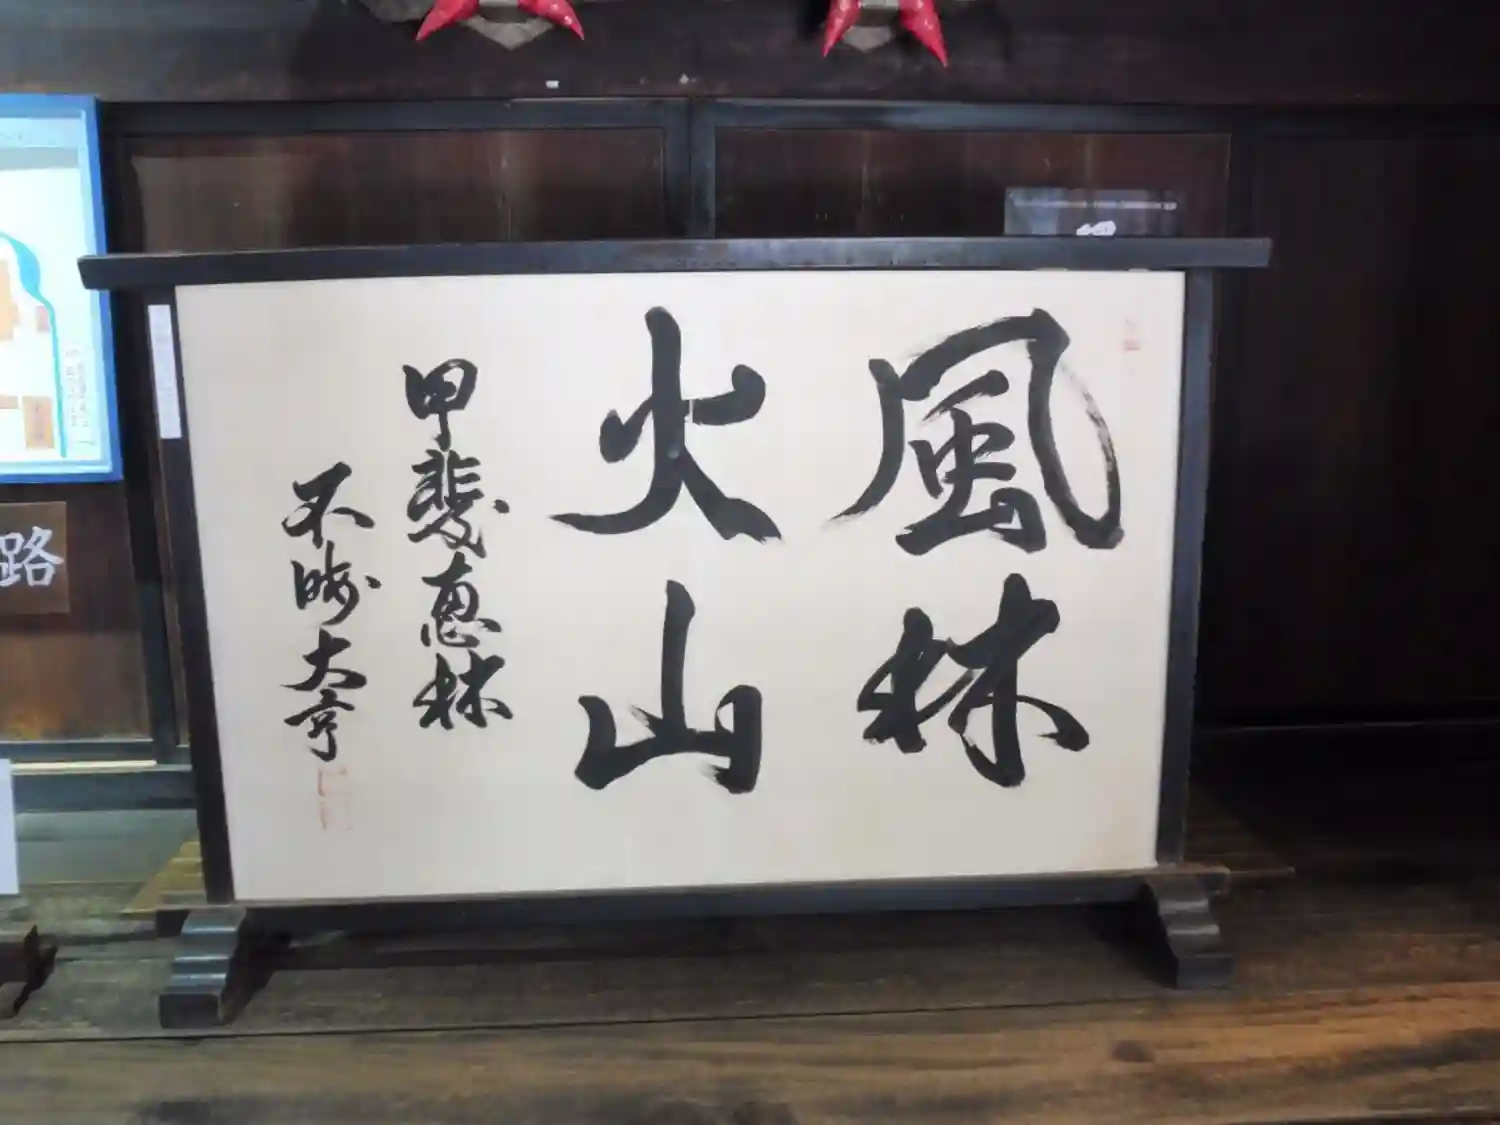 風林
火山
甲斐恵林
不晦大亨
路